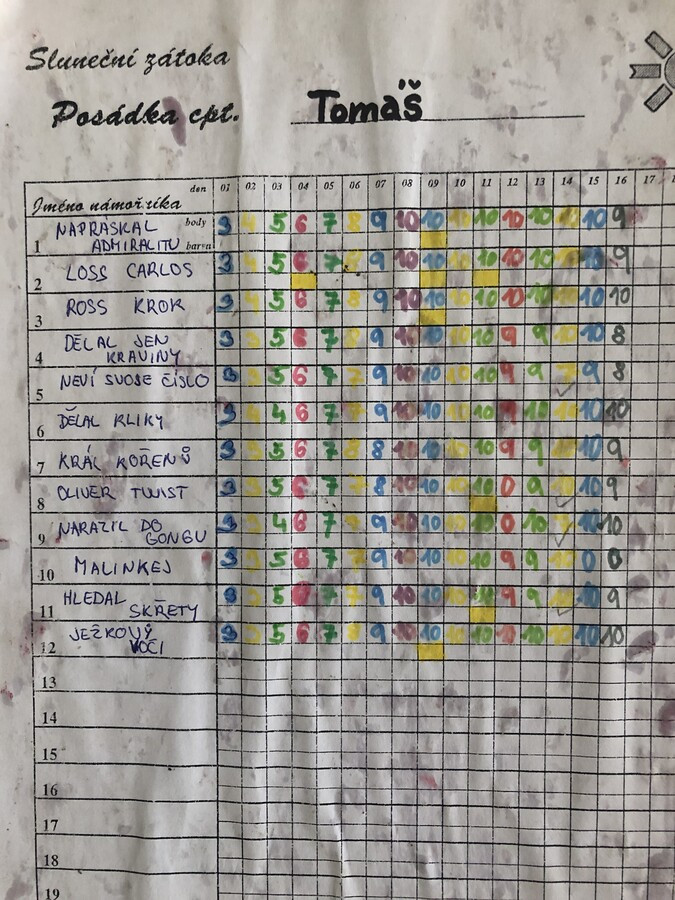 Sluneční zátoka
Posádka cpt. Tomáš
den 01 02 03 04 05 06 07 08 09 10 11 12 13 14 15 16 17
Jméno námořníka
body
barva
1 NAPRÁSKAL ADMIRALITU 3 4 5 6 7 8 9 10 10 10 10 10 10 10 9
2 LOSS CARLOS 3 5 6 9 10 10 10 10 10 10 9
3 ROSS KROK 3 4 5 6 7 8 9 10 10 10 10 10 10 10 10
4 DĚLAL JEN KRAVINY 3 5 6 7 7 9 10 10 10 10 9 9 10 8
5 NEVÍ SVOJE ČÍSLO 3 3 5 6 7 7 9 10 10 10 10 9 9 7 9 8
6 DĚLAL KLIKY 3 4 4 6 7 7 9 10 10 10 10 9 10 10 10
7 KRÁL KOŘENŮ 3 3 5 6 7 8 8 10 10 10 10 9 9 10 9
8 OLIVER TWIST 3 3 5 6 7 7 8 10 10 10 10 0 9 10 9
9 NARAZIL DO GONGU 3 3 4 6 7 9 10 10 10 10 0 10 7 10
10 MALINKEJ 3 3 5 6 7 7 9 10 10 10 10 9 9 0 0
11 HLEDAL SKŘETY 3 3 5 6 7 7 9 10 10 10 10 9 9 10 9
12 JEŽKOVÝ VOČI 3 3 5 6 7 8 9 10 10 10 10 10 10 10 10 10
13
14
15
16
17
18
19